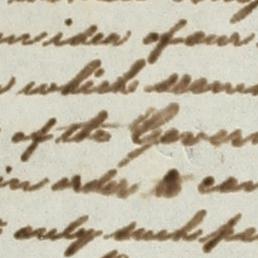 idea of our
which seems
of the Govern
in order to con
only such pa